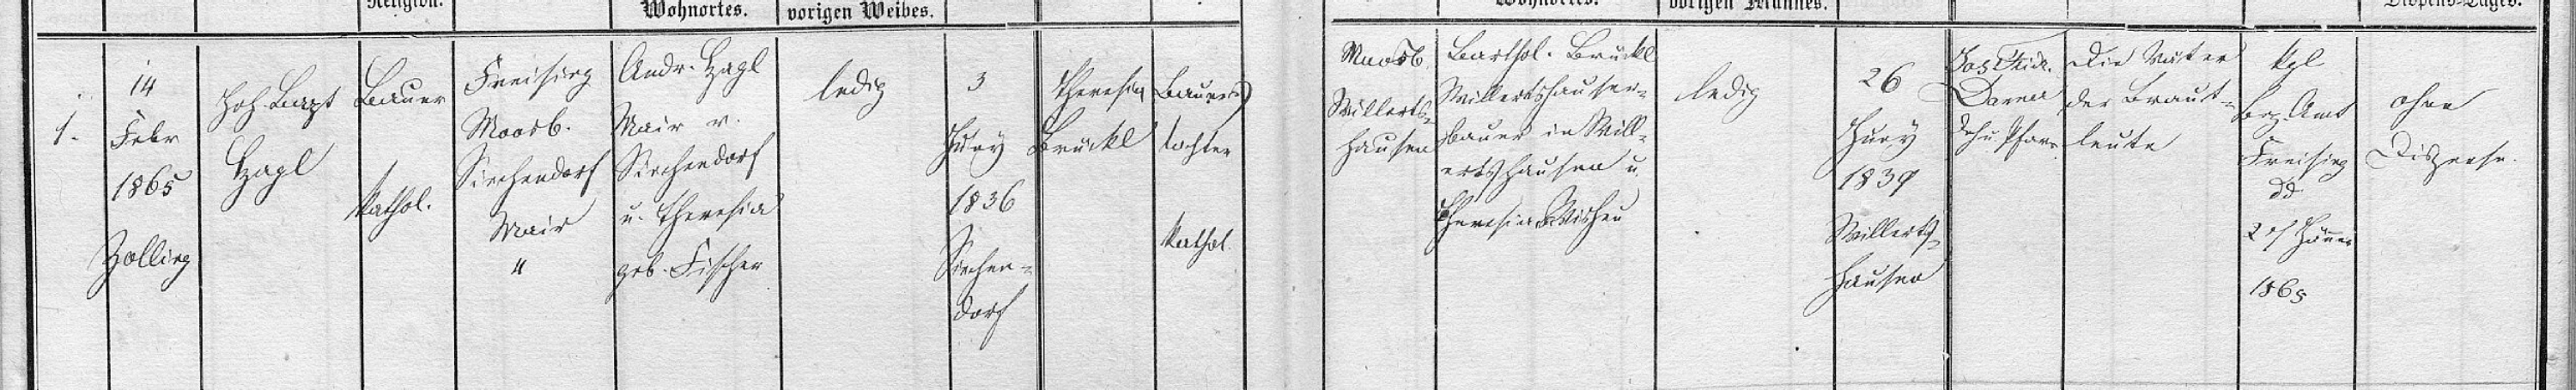 Religion.
Wohnortes.
vorigen Weibes.
Wohnortes.
vorigen Mannes.
Dispens-Tages.
1.
14
Febr
1865
Zolling
Joh. Bapt
Hagl
Bauer
Kathol.
Freising
Moosb.
Kirchendorf
Mair
"
Andr. Hagl
Mair v.
Kirchendorf
u. Theresia
geb. Fischer
ledig
3
1836
Kirchen-
dorf
Theresia
Brückl
Bauers
tochter
Kathol.
Moosb.
Willerts-
hausen
Barthol. Brückl
Willertshauser-
bauer in Will-
ertshausen u.
Theresia
ledig
26
1839
Willerts-
hausen
Jos.
Pfarr
Die Väter
der Braut-
leute
Kgl
Bez. Amt
Freising
dd
Jänner
1865
ohne
Dispense.